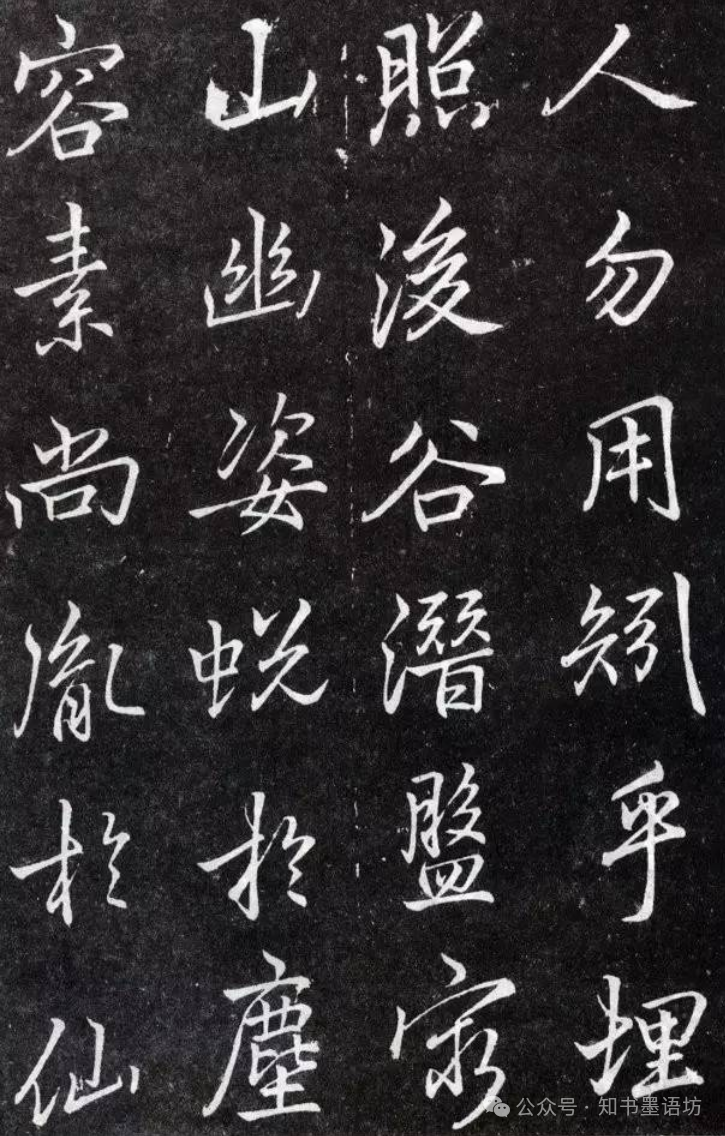 人勿用矧乎埋
照浚谷潛盤窮
山幽姿蜕於塵
容素尚胤於仙
公众号·知书墨语坊